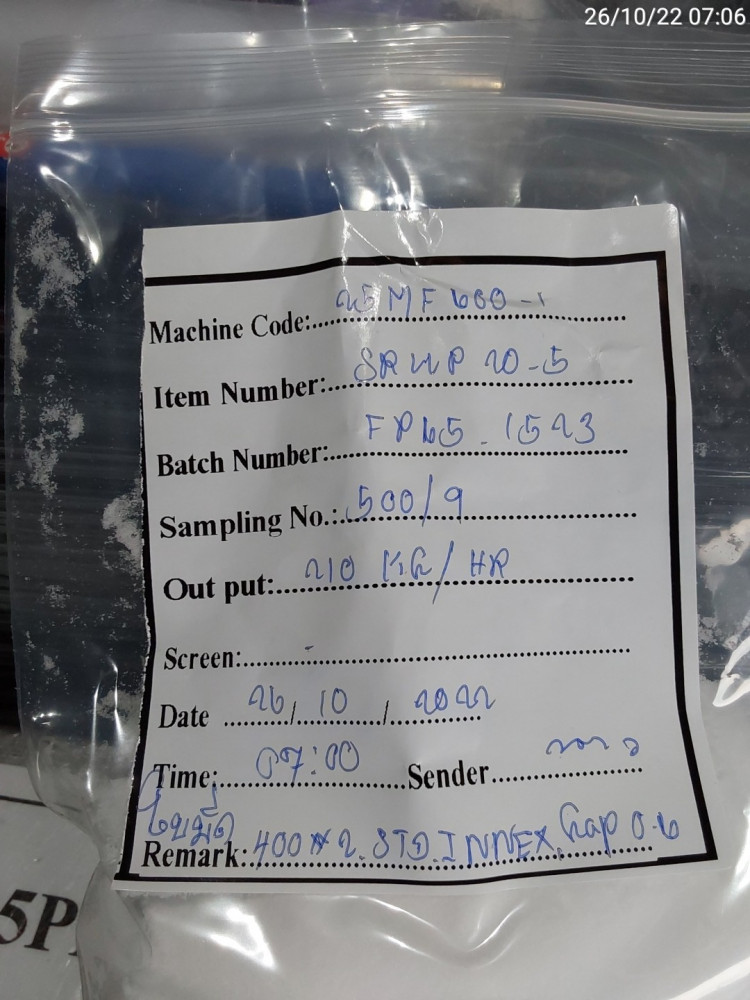 26/10/22 07:06
Machine Code: 25 MF 600-1
Item Number: SRUP 20-5
Batch Number: FP65-1523
Sampling No.: 500/9
Out put: 210 KG/HR
Screen: -
Date 26/10/2022
Time: 07:00 Sender
ใบมีด
Remark: 400*2.STD.INNEX. Gap 0.6
5P